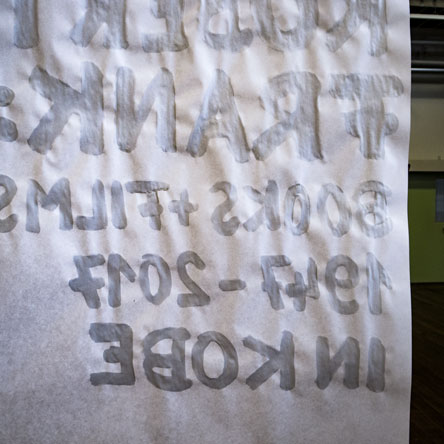 ROBERT
FRANK:
BOOKS + FILMS
1947-2017
IN KOBE